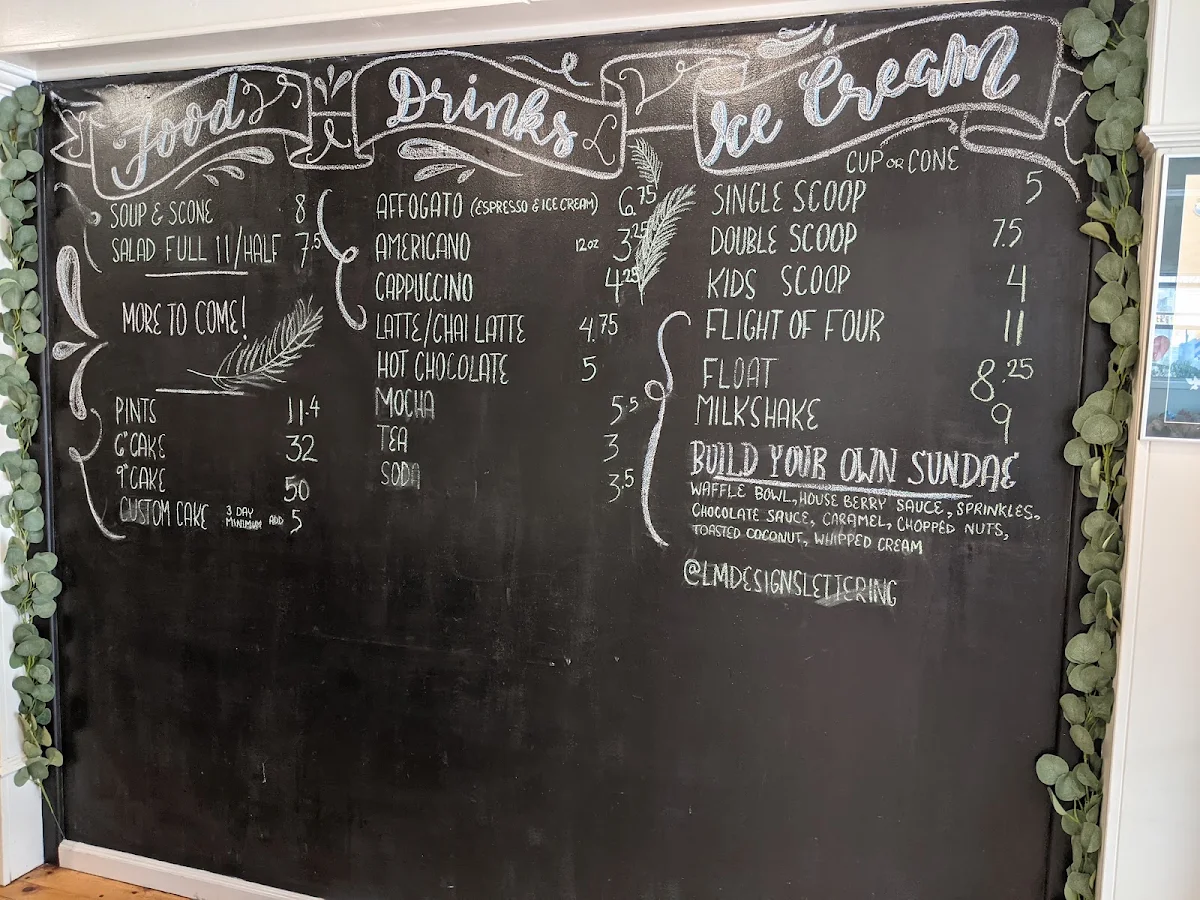 Food
SOUP & SCONE 8
SALAD FULL 11/HALF 7.5
MORE TO COME!
PINTS 11.4
6" CAKE 32
9" CAKE 50
CUSTOM CAKE 3 DAY MINIMUM ADD 5
Drinks
AFFOGATO (ESPRESSO & ICE CREAM) 6.75
AMERICANO 12oz 3.25
CAPPUCCINO 4.25
LATTE/CHAI LATTE 4.75
HOT CHOCOLATE 5
MOCHA 5.5
TEA 3
SODA 3.5
Ice Cream
CUP OR CONE
SINGLE SCOOP 5
DOUBLE SCOOP 7.5
KIDS SCOOP 4
FLIGHT OF FOUR 11
FLOAT 8.25
MILKSHAKE 9
BUILD YOUR OWN SUNDAE
WAFFLE BOWL, HOUSE BERRY SAUCE, SPRINKLES,
CHOCOLATE SAUCE, CARAMEL, CHOPPED NUTS,
TOASTED COCONUT, WHIPPED CREAM
@LMDESIGNSLETTERING